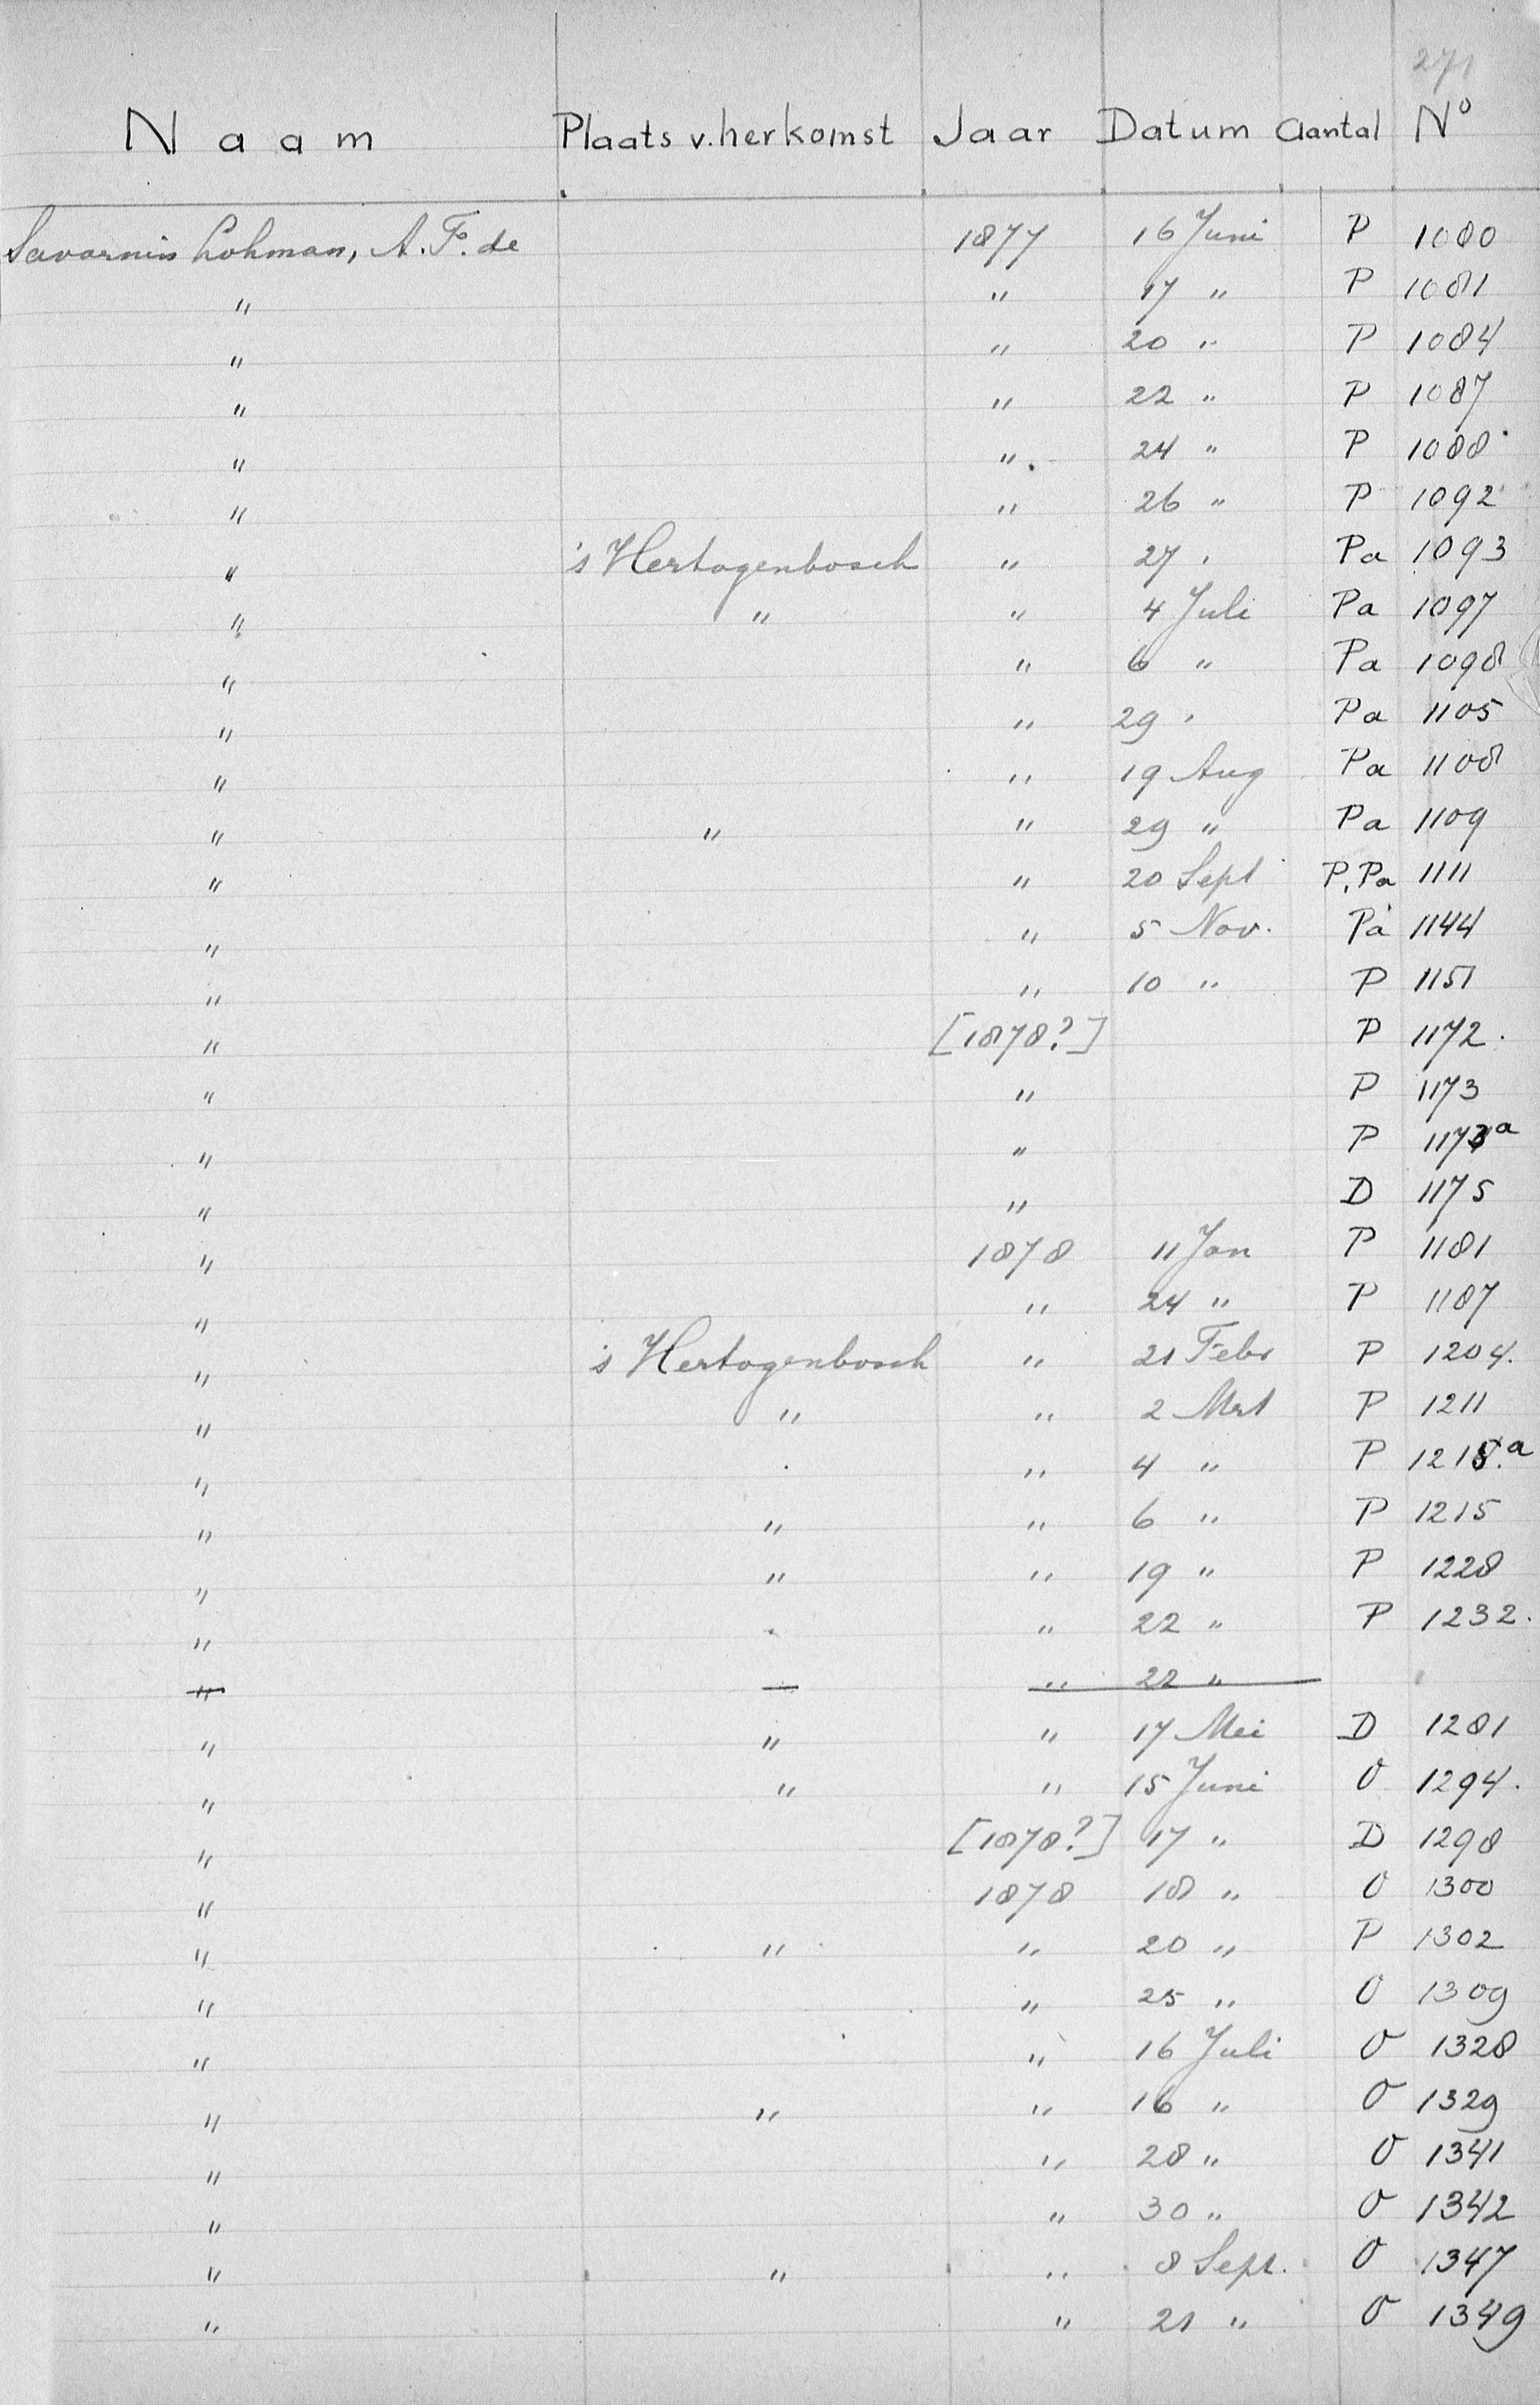 271
Naam Plaats v. herkomst Jaar Datum Aantal No
Savornin Lohman, A. F. de 1877 16 Juni P 1080
" " 17 " P 1081
" " 20 " P 1084
" " 22 " P 1087
" " 24 " P 1088
" " 26 " P 1092
" 's Hertogenbosch " 27 " Pa 1093
" " " 4 Juli Pa 1097
" " 6 " Pa 1098
" " 29 " Pa 1105
" " 19 Aug Pa 1108
" " " 29 " Pa 1109
" " 20 Sept P, Pa 1111
" " 5 Nov. Pa 1144
" " 10 " P 1151
" [1878?] P 1172.
" " P 1173
" " P 1173a
" " D 1175
" 1878 11 Jan P 1181
" " 24 " P 1187
" 's Hertogenbosch " 21 Febr P 1204.
" " " 2 Mrt P 1211
" " 4 " P 1215.a
" " " 6 " P 1215
" " " 19 " P 1228
" " 22 " P 1232.
" — " 22 "
" " " 17 Mei D 1281
" " " 15 Juni O 1294.
" [1878?] 17 " D 1298
" 1878 18 " O 1300
" " " 20 " P 1302
" " 25 " O 1309
" " 16 Juli O 1328
" " " 16 " O 1329
" " 28 " O 1341
" " 30 " O 1342
" " " 8 Sept. O 1347
" " 21 " O 1349